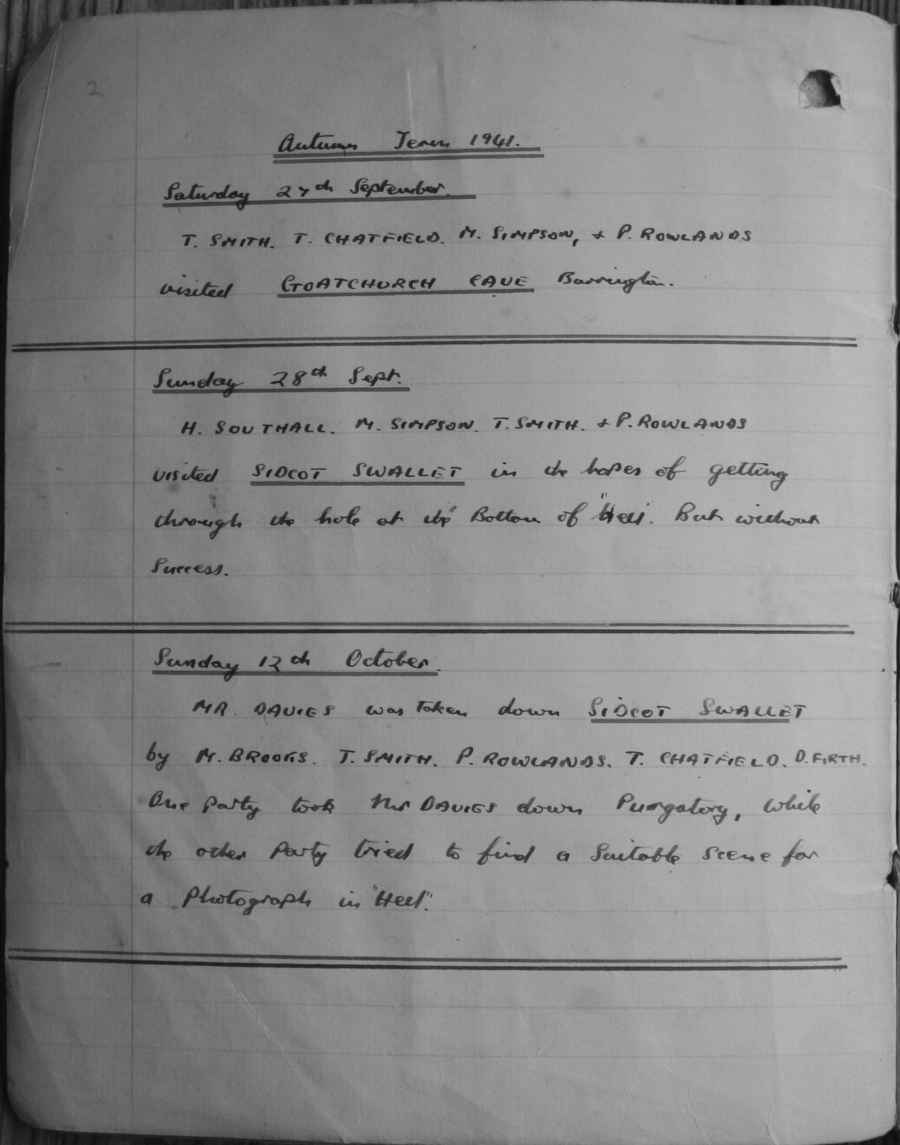 2
Autumn Term 1941.
Saturday 27th September.
T. SMITH. T. CHATFIELD. M. SIMPSON, + P. ROWLANDS
visited GOATCHURCH CAVE Burrington.
Sunday 28th Sept.
H. SOUTHALL. M. SIMPSON. T. SMITH. + P. ROWLANDS
visited SIDCOT SWALLET in the hopes of getting
through the hole at the Bottom of "Hell". But without
Success.
Sunday 12th October.
MR. DAVIES was Taken down SIDCOT SWALLET
by M. BROOKS. T. SMITH. P. ROWLANDS. T. CHATFIELD. D. FIRTH.
One party took Mr DAVIES down Purgatory, while
the other Party tried to find a Suitable Scene for
a Photograph in "Hell".